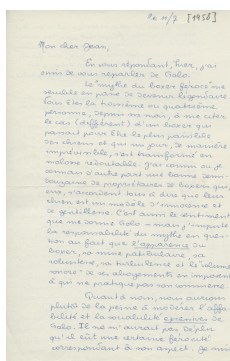 le 11/7 [1958]
Mon cher Jean,
En vous répondant, hier, j'ai
omis de vous reparler de Gobo.
Le mythe du boxer féroce me
semble en passe de devenir légendaire
vous êtes la troisième ou quatrième
personne, depuis un mois, à me citer
le cas (différent) d'un boxer qui
passait pour être le plus paisible
des chiens et qui un jour, de manière
imprévisible, s'est transformé en
molosse redoutable. J'ai connu ou
connais d'autre part une bonne demi-
douzaine de propriétaires de boxers qui,
eux, s'accordent tous à dire que leur
chien est un modèle d'innocence et
de gentillesse. C'est aussi le sentiment
que me donne Gobo - mais, j'impute
la responsabilité du mythe en ques-
tion au fait que l'apparence du
boxer, sa mine patibulaire, sa
robustesse, sa turbulence et le volume
sonore de ses aboiements en imposent
à qui ne pratique pas
Quant à nous, nous aurions
plutôt de la peine à modérer l'affa-
bilité et la sociabilité excessives de
Gobo. Il ne m'aurait pas déplu
qu'il eût une certaine férocité
correspondant à son aspect. Je m'en